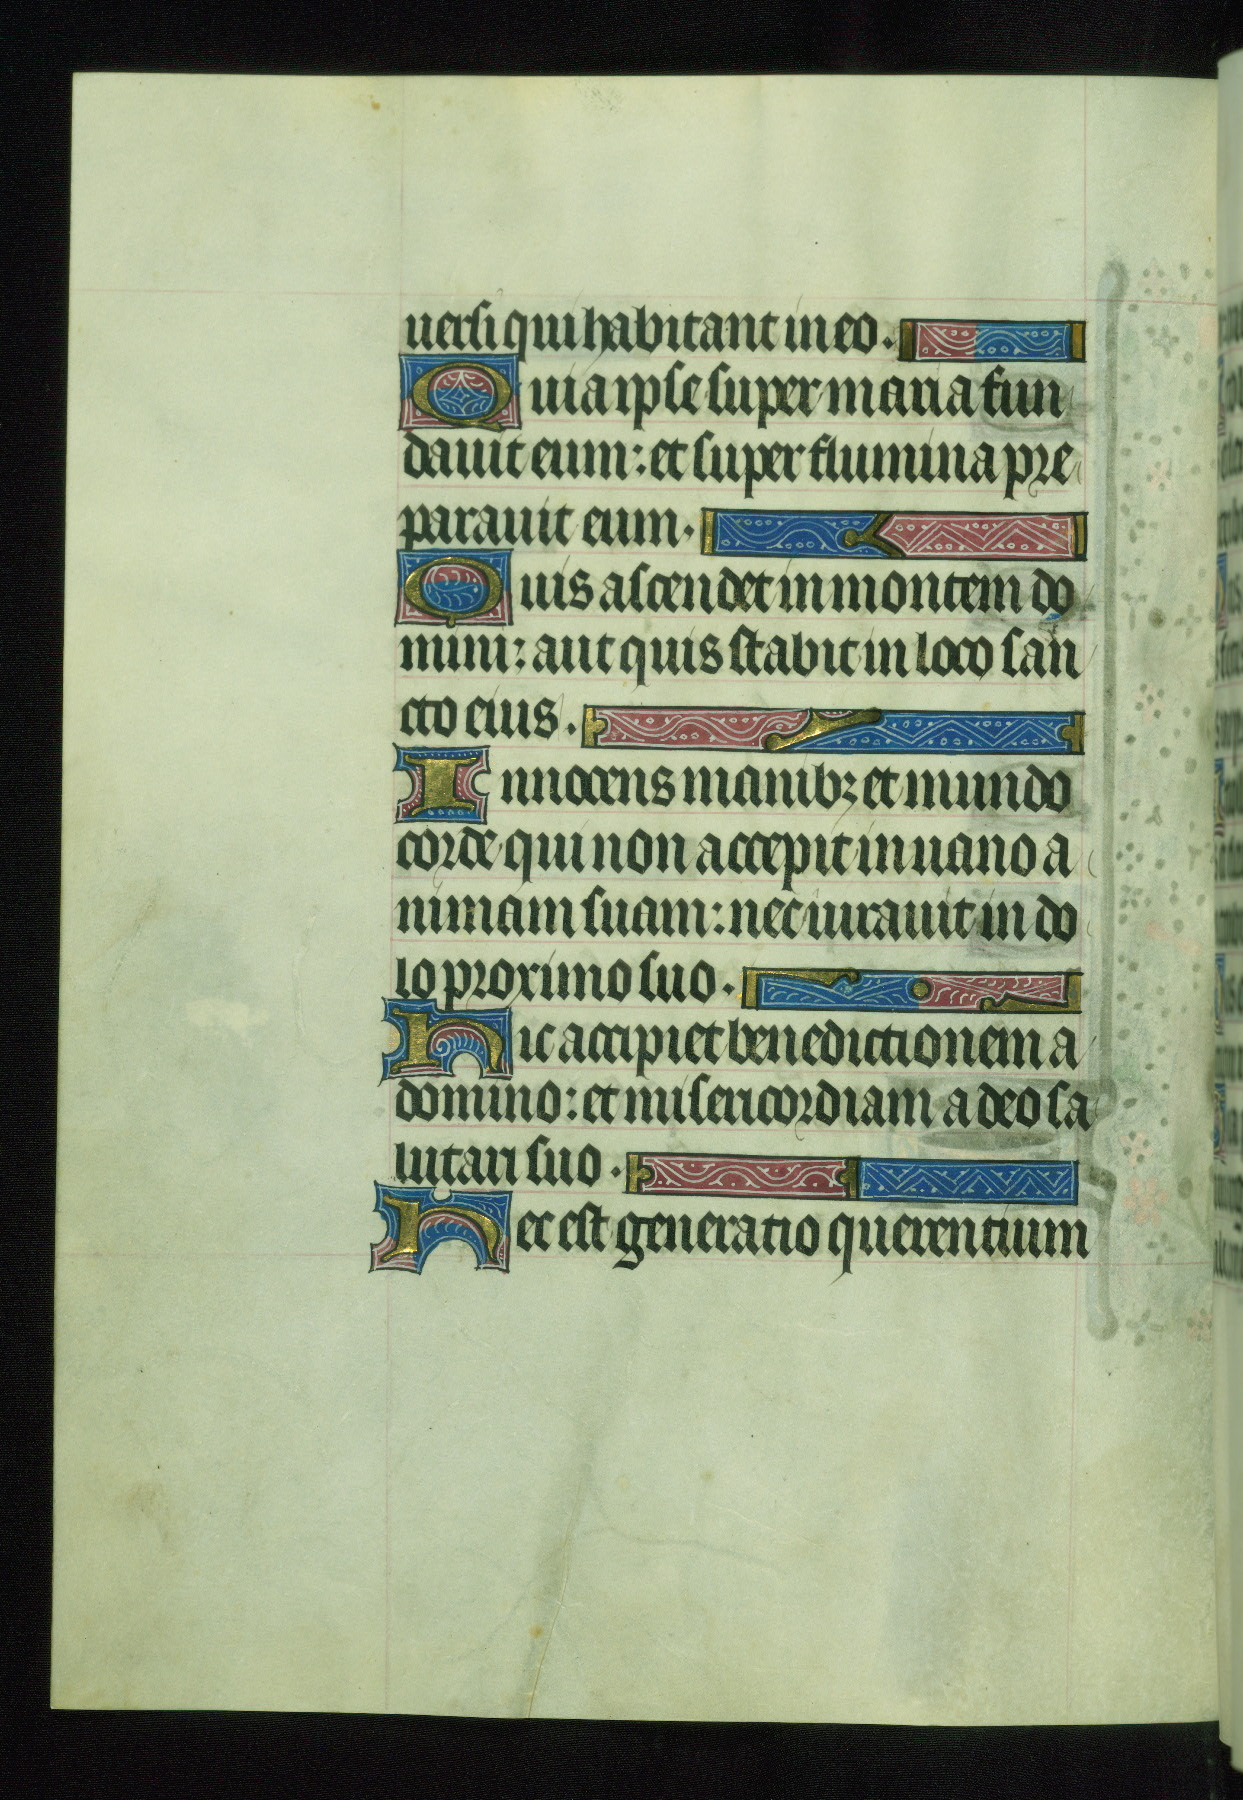 uersi qui habitant in eo.
Quia ipse super maria fun
dauit eum: et super flumina pre
parauit eum.
Quis ascendet in montem do
mini: aut quis stabit in loco san
cto eius.
Innocens manibꝫ et mundo
corde qui non accepit in uano a
nimam suam: nec iurauit in do
lo proximo suo.
Hic accipiet benedictionem a
domino: et misericordiam a deo sa
lutari suo.
Hec est generatio querentium